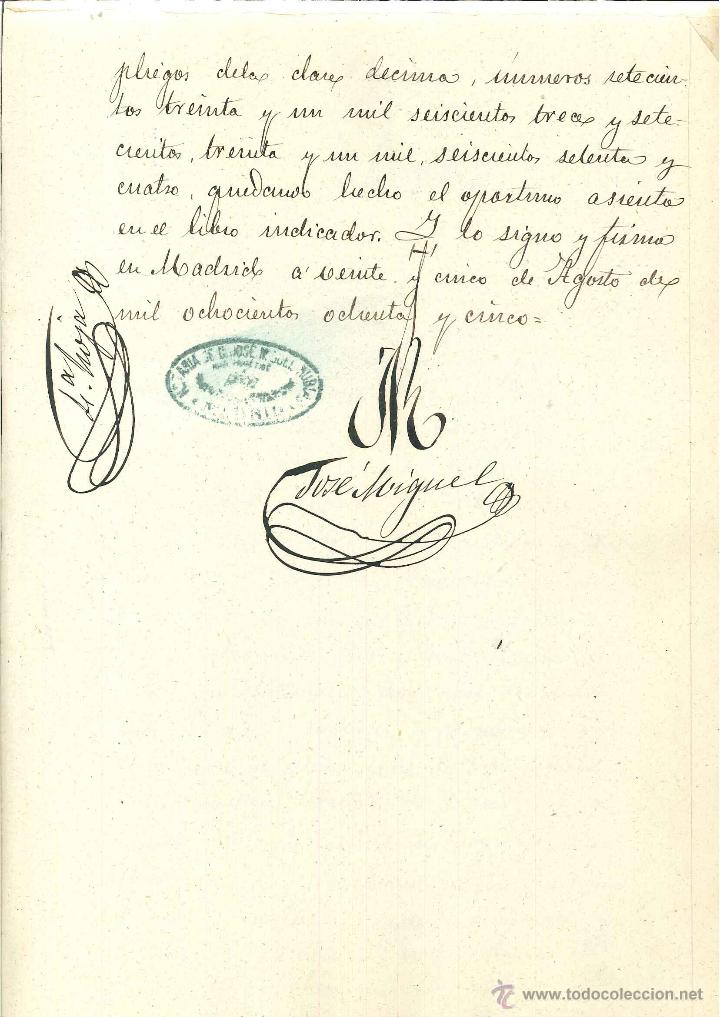 pliegos dela clase decima, números setecien-
tos treinta y un mil seiscientos trece y sete-
cientos, treinta y un mil, seiscientos setenta y
cuatro, quedando hecho el oportuno asiento
en el libro indicador. Y lo signo y firmo
en Madrid á veinte y cinco de Agosto de
mil ochocientos ochenta y cinco=
NOTARIA DE D. JOSÉ MIGUEL RUBIAS
MADRID
José Miguel
www.todocoleccion.net